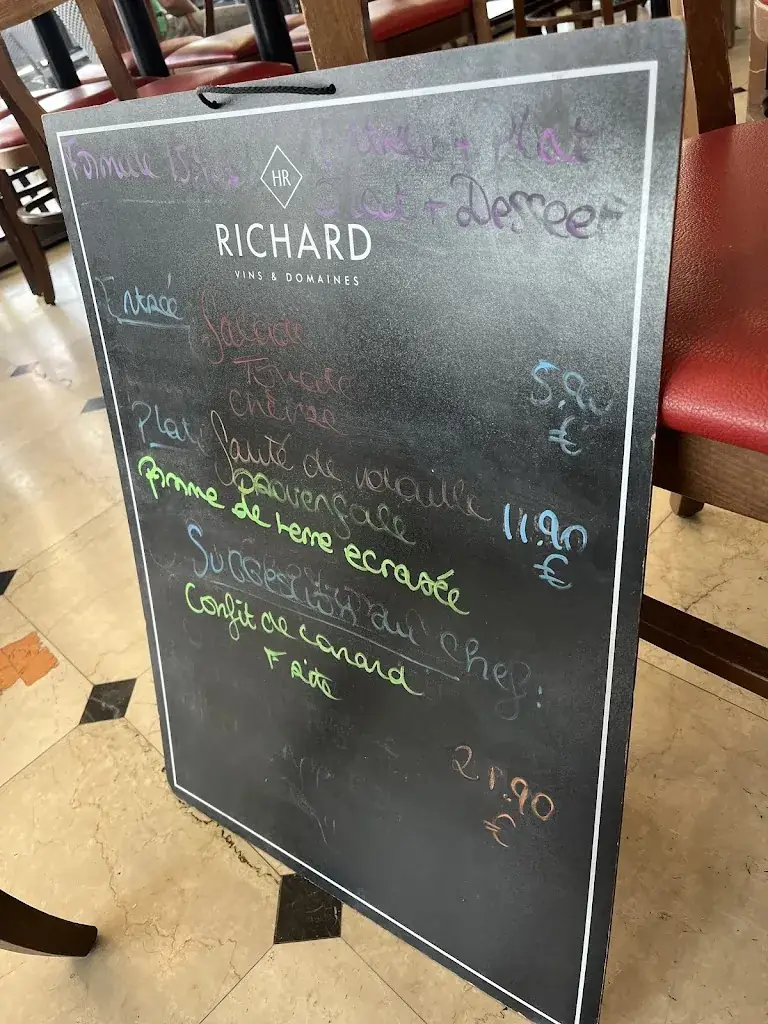 Formule Entrée + Plat
Plat + Dessert
HR
RICHARD
VINS & DOMAINES
Entrée Salade
Tomate
chèvre
5,90
€
Plat Sauté de volaille
provençale
11.90
€
Pomme de terre ecrasée
Suggestion du chef:
Confit de canard
Frite
21.90
€